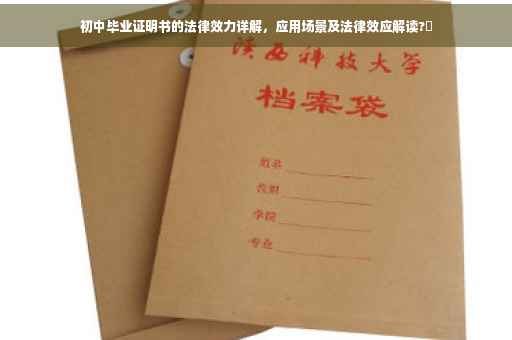 初中毕业证明书的法律效力详解，应用场景及法律效应解读?
陕西科技大学
档案袋
姓名
学院
专业